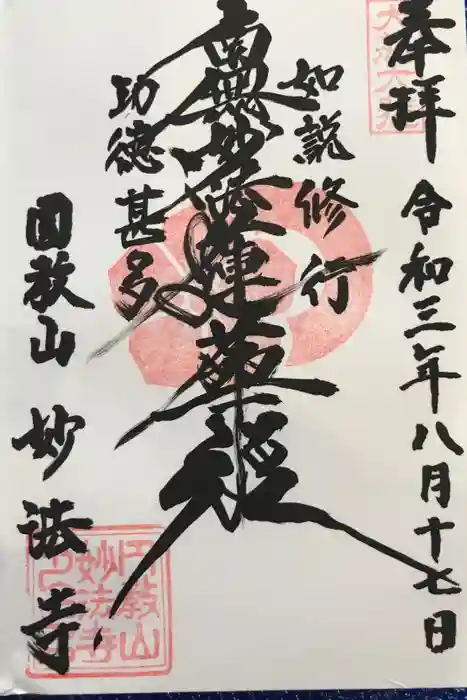 奉拝
令和三年八月十七日
如説修行
南無妙法蓮華経
功徳甚多
圓教山 妙法寺
円教山
妙法寺